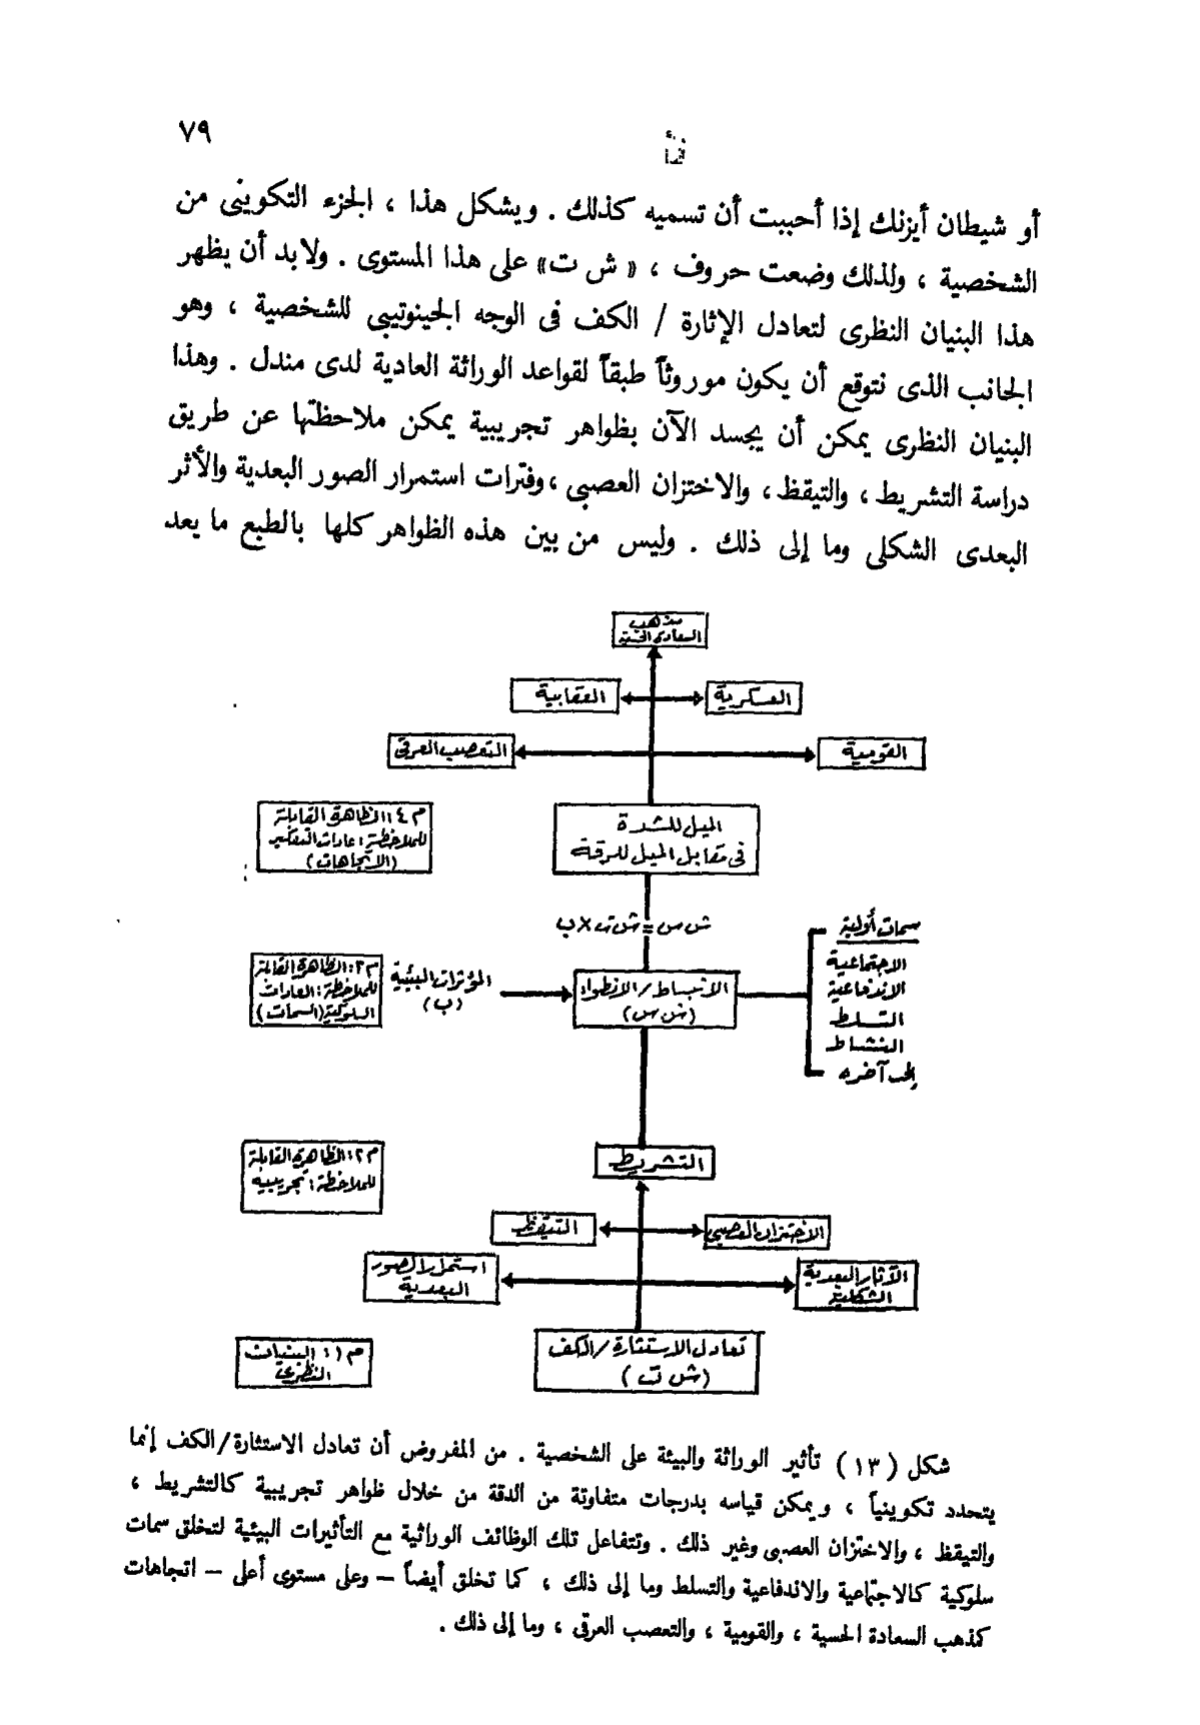 ٧٩
أو شيطان أيزنك إذا أحببت أن تسميه كذلك . ويشكل هذا ، الجزء التكوينى من
الشخصية ، ولذلك وضعت حروف ، « ش ت» على هذا المستوى . ولابد أن يظهر
هذا البنيان النظرى لتعادل الإثارة / الكف فى الوجه الجينوتيبى للشخصية ، وهو
الجانب الذى نتوقع أن يكون موروثاً طبقاً لقواعد الوراثة العادية لدى مندل . وهذا
البنيان النظرى يمكن أن يجسد الآن بظواهر تجريبية يمكن ملاحظتها عن طريق
دراسة التشريط ، والتيقظ ، والاختزان العصبى ، وفترات استمرار الصور البعدية والأثر
البعدى الشكلى وما إلى ذلك . وليس من بين هذه الظواهر كلها بالطبع ما يعد
مذهب
السعادة الحسية
العسكرية
العقابية
القومية
التعصب العرقى
الميل للشدة
فى مقابل الميل للرقة
م٤: الظاهرة القابلة
للملاحظة: عادات التفكير
(الاتجاهات)
ش س = ش ت × ب
سمات أولية
الاجتماعية
الاندفاعية
التسلط
النشاط
إلى آخره
الانبساط/الانطواء
(ش س)
المؤثرات البيئية
(ب)
م٣: الظاهرة القابلة
للملاحظة: العادات
السلوكية (السمات)
التشريط
م٢: الظاهرة القابلة
للملاحظة: تجريبية
الاختزان العصبى
التيقظ
الآثار البعدية
الشكلية
استمرار الصور
البعدية
تعادل الاستثارة/الكف
(ش ت)
م١: البنيان
النظرى
شكل ( ١٣ ) تأثير الوراثة والبيئة على الشخصية . من المفروض أن تعادل الاستثارة/الكف إنما
يتحدد تكوينياً ، ويمكن قياسه بدرجات متفاوتة من الدقة من خلال ظواهر تجريبية كالتشريط ،
والتيقظ ، والاختزان العصبى وغير ذلك . وتتفاعل تلك الوظائف الوراثية مع التأثيرات البيئية لتخلق سمات
سلوكية كالاجتماعية والاندفاعية والتسلط وما إلى ذلك ، كما تخلق أيضاً – وعلى مستوى أعلى – اتجاهات
كمذهب السعادة الحسية ، والقومية ، والتعصب العرقى ، وما إلى ذلك .